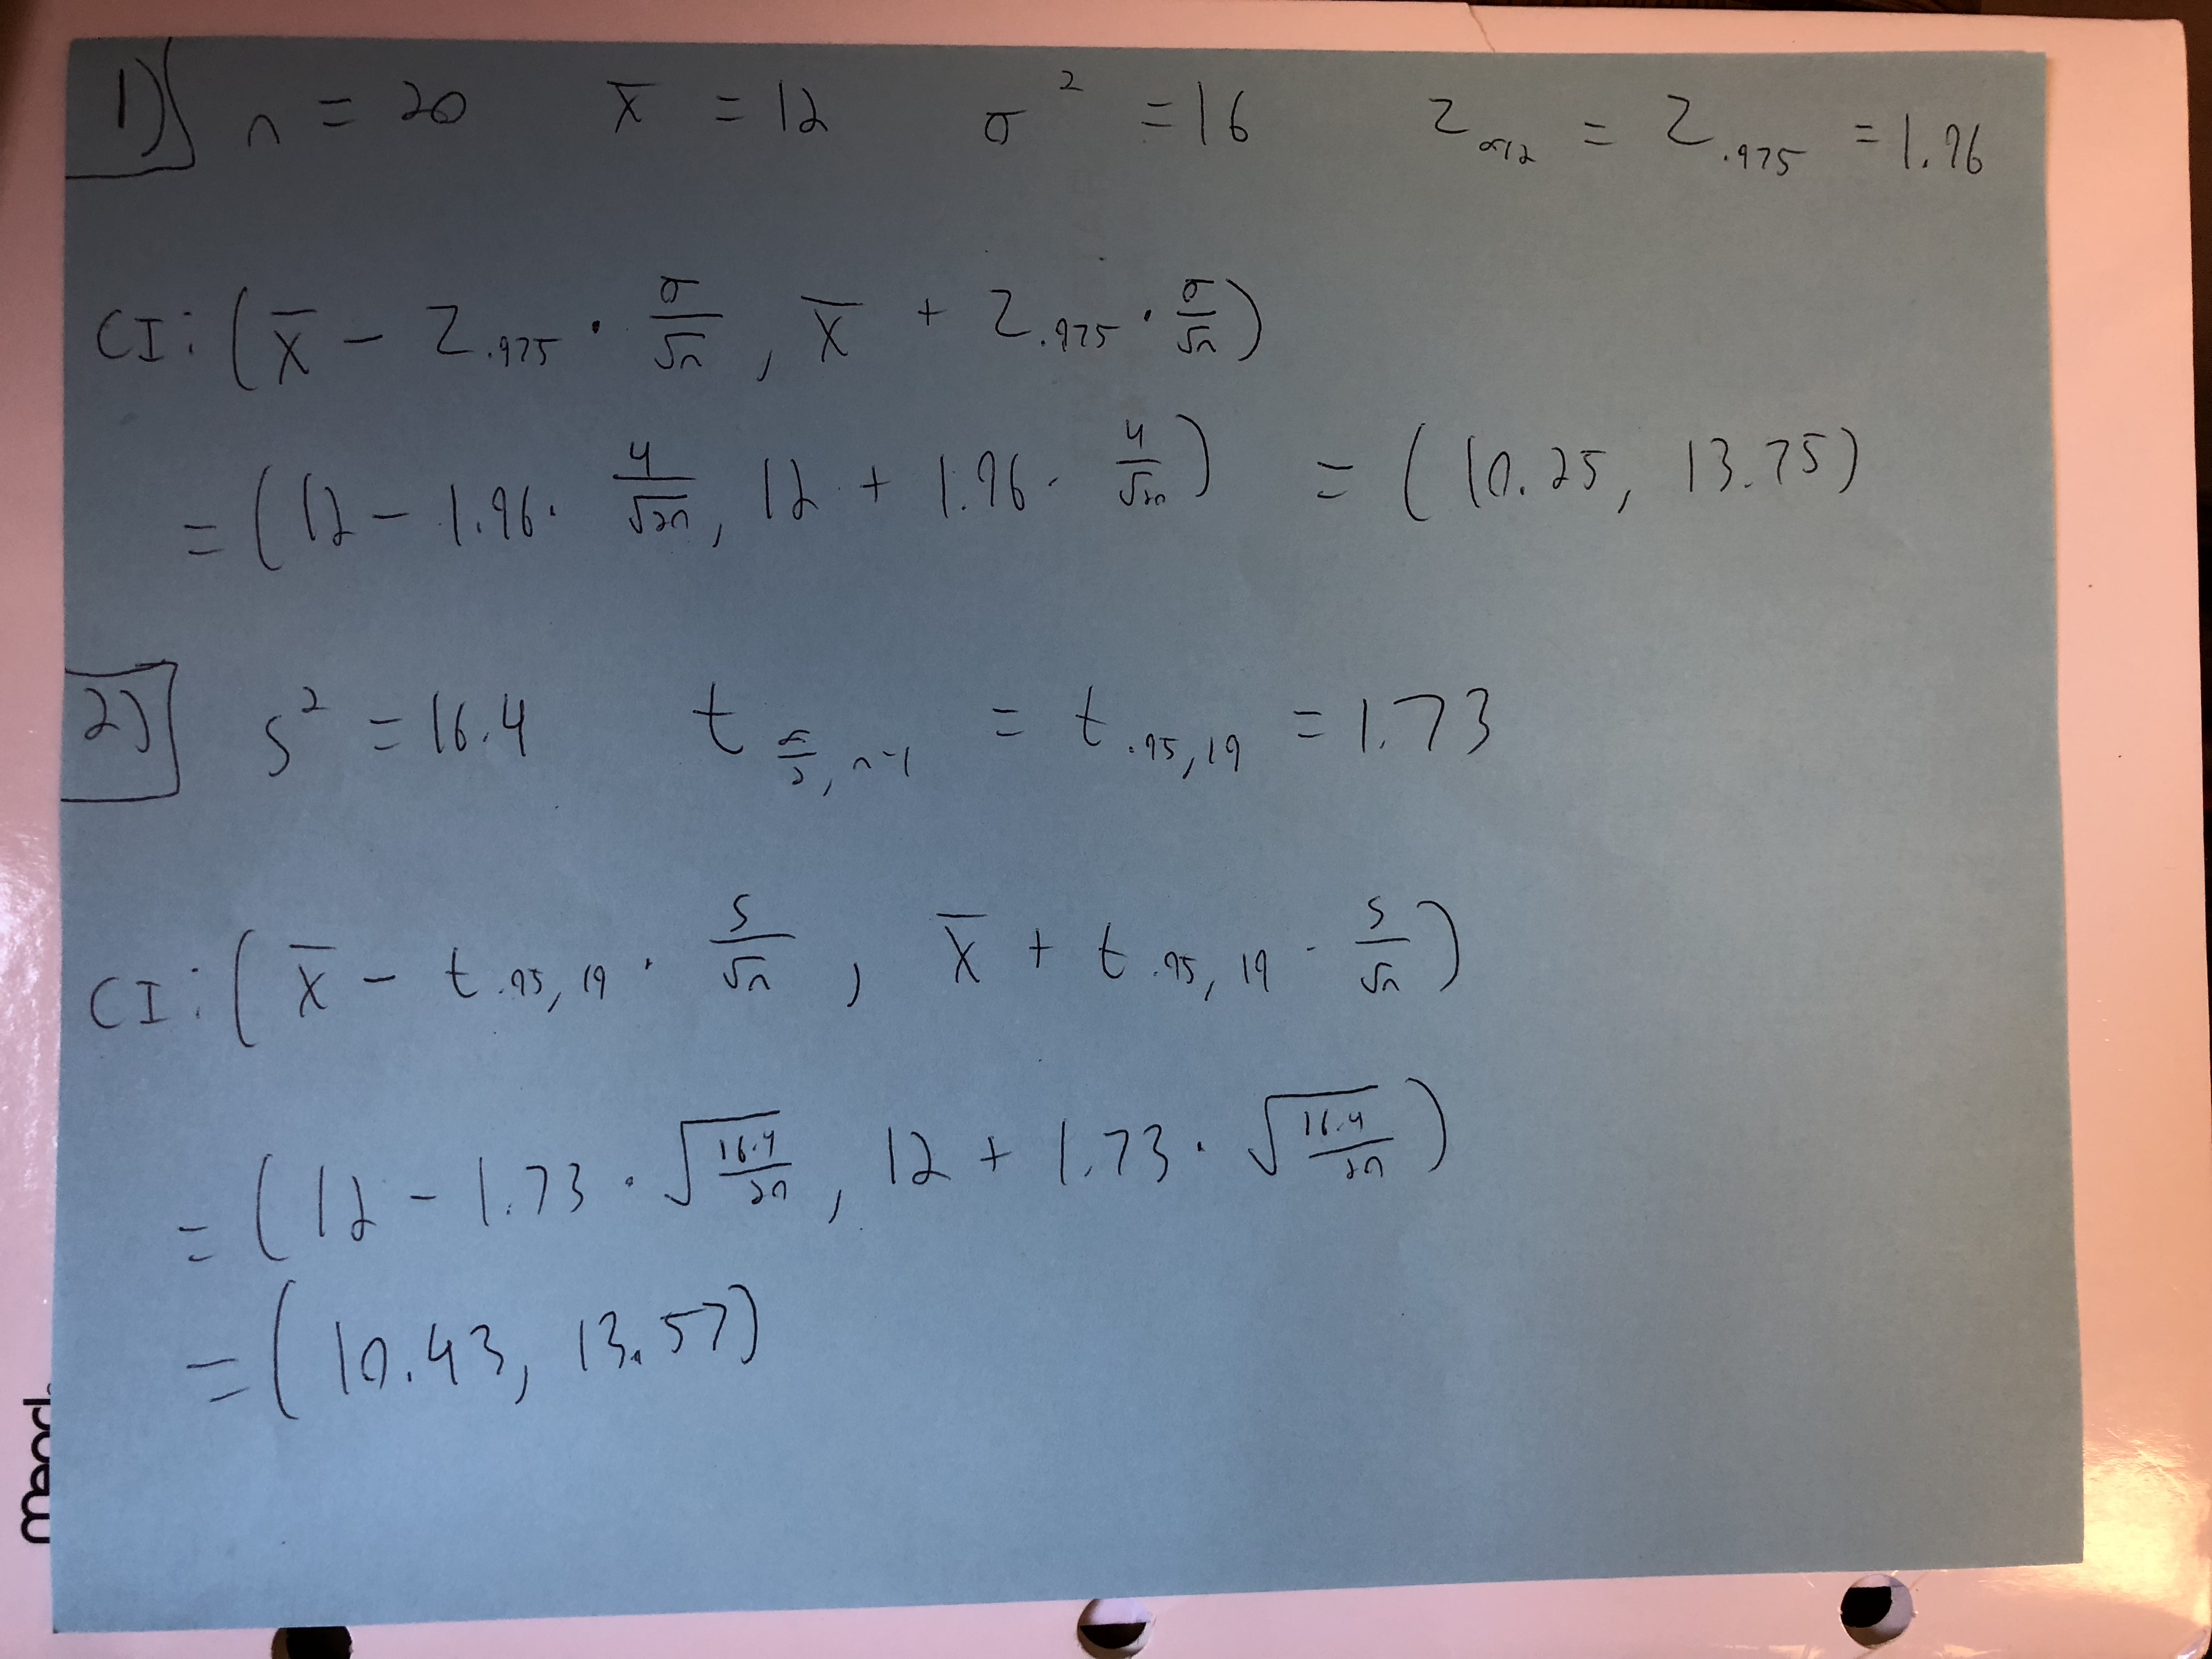 1) n = 20 x̄ = 12 σ² = 16 z_{α/2} = z_{.975} = 1.96
CI: (x̄ - z_{.975} · σ/√n, x̄ + z_{.975} · σ/√n)
= (12 - 1.96 · 4/√20, 12 + 1.96 · 4/√20) = (10.25, 13.75)
2) s² = 16.4 t_{α/2, n-1} = t_{.95, 19} = 1.73
CI: (x̄ - t_{.95, 19} · s/√n, x̄ + t_{.95, 19} · s/√n)
= (12 - 1.73 · √(16.4/20), 12 + 1.73 · √(16.4/20))
= (10.43, 13.57)